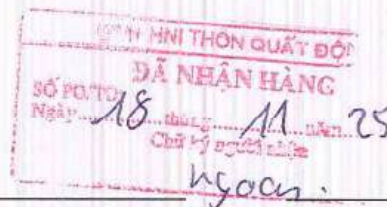 HNI THÔN QUẤT ĐỘ
ĐÃ NHẬN HÀNG
SỐ PO/TO
Ngày 18 tháng 11 năm 25
Chữ ký người nhận
ngoan.